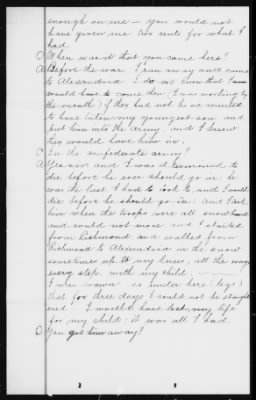 enough on me — you would not
have given me two cents for what I
had.
Q When was it that you came here?
A Before the war. I run away and came
to Alexandria I do not know that I
would have to come then (I was working by
the month) if they had not he wanted
to have taken my youngest son and
put him into the army, and I knew
they would have him in.
Q In the confederate army?
A Yes sir and I was determined to
die before he ever should go in. he
was the last I had to look to, and I would
die before he should go in. And I took
him when the troops were all snow bound
and could not move and I started
from Richmond and walked from
Richmond to Alexandria in the snow
sometimes up to my knees, all the way
every step with my child.
I was drawn so under here (legs)
that for three days I could not be straight
end. I would have lost my life
for my child; it was all I had.
Q You got him away?